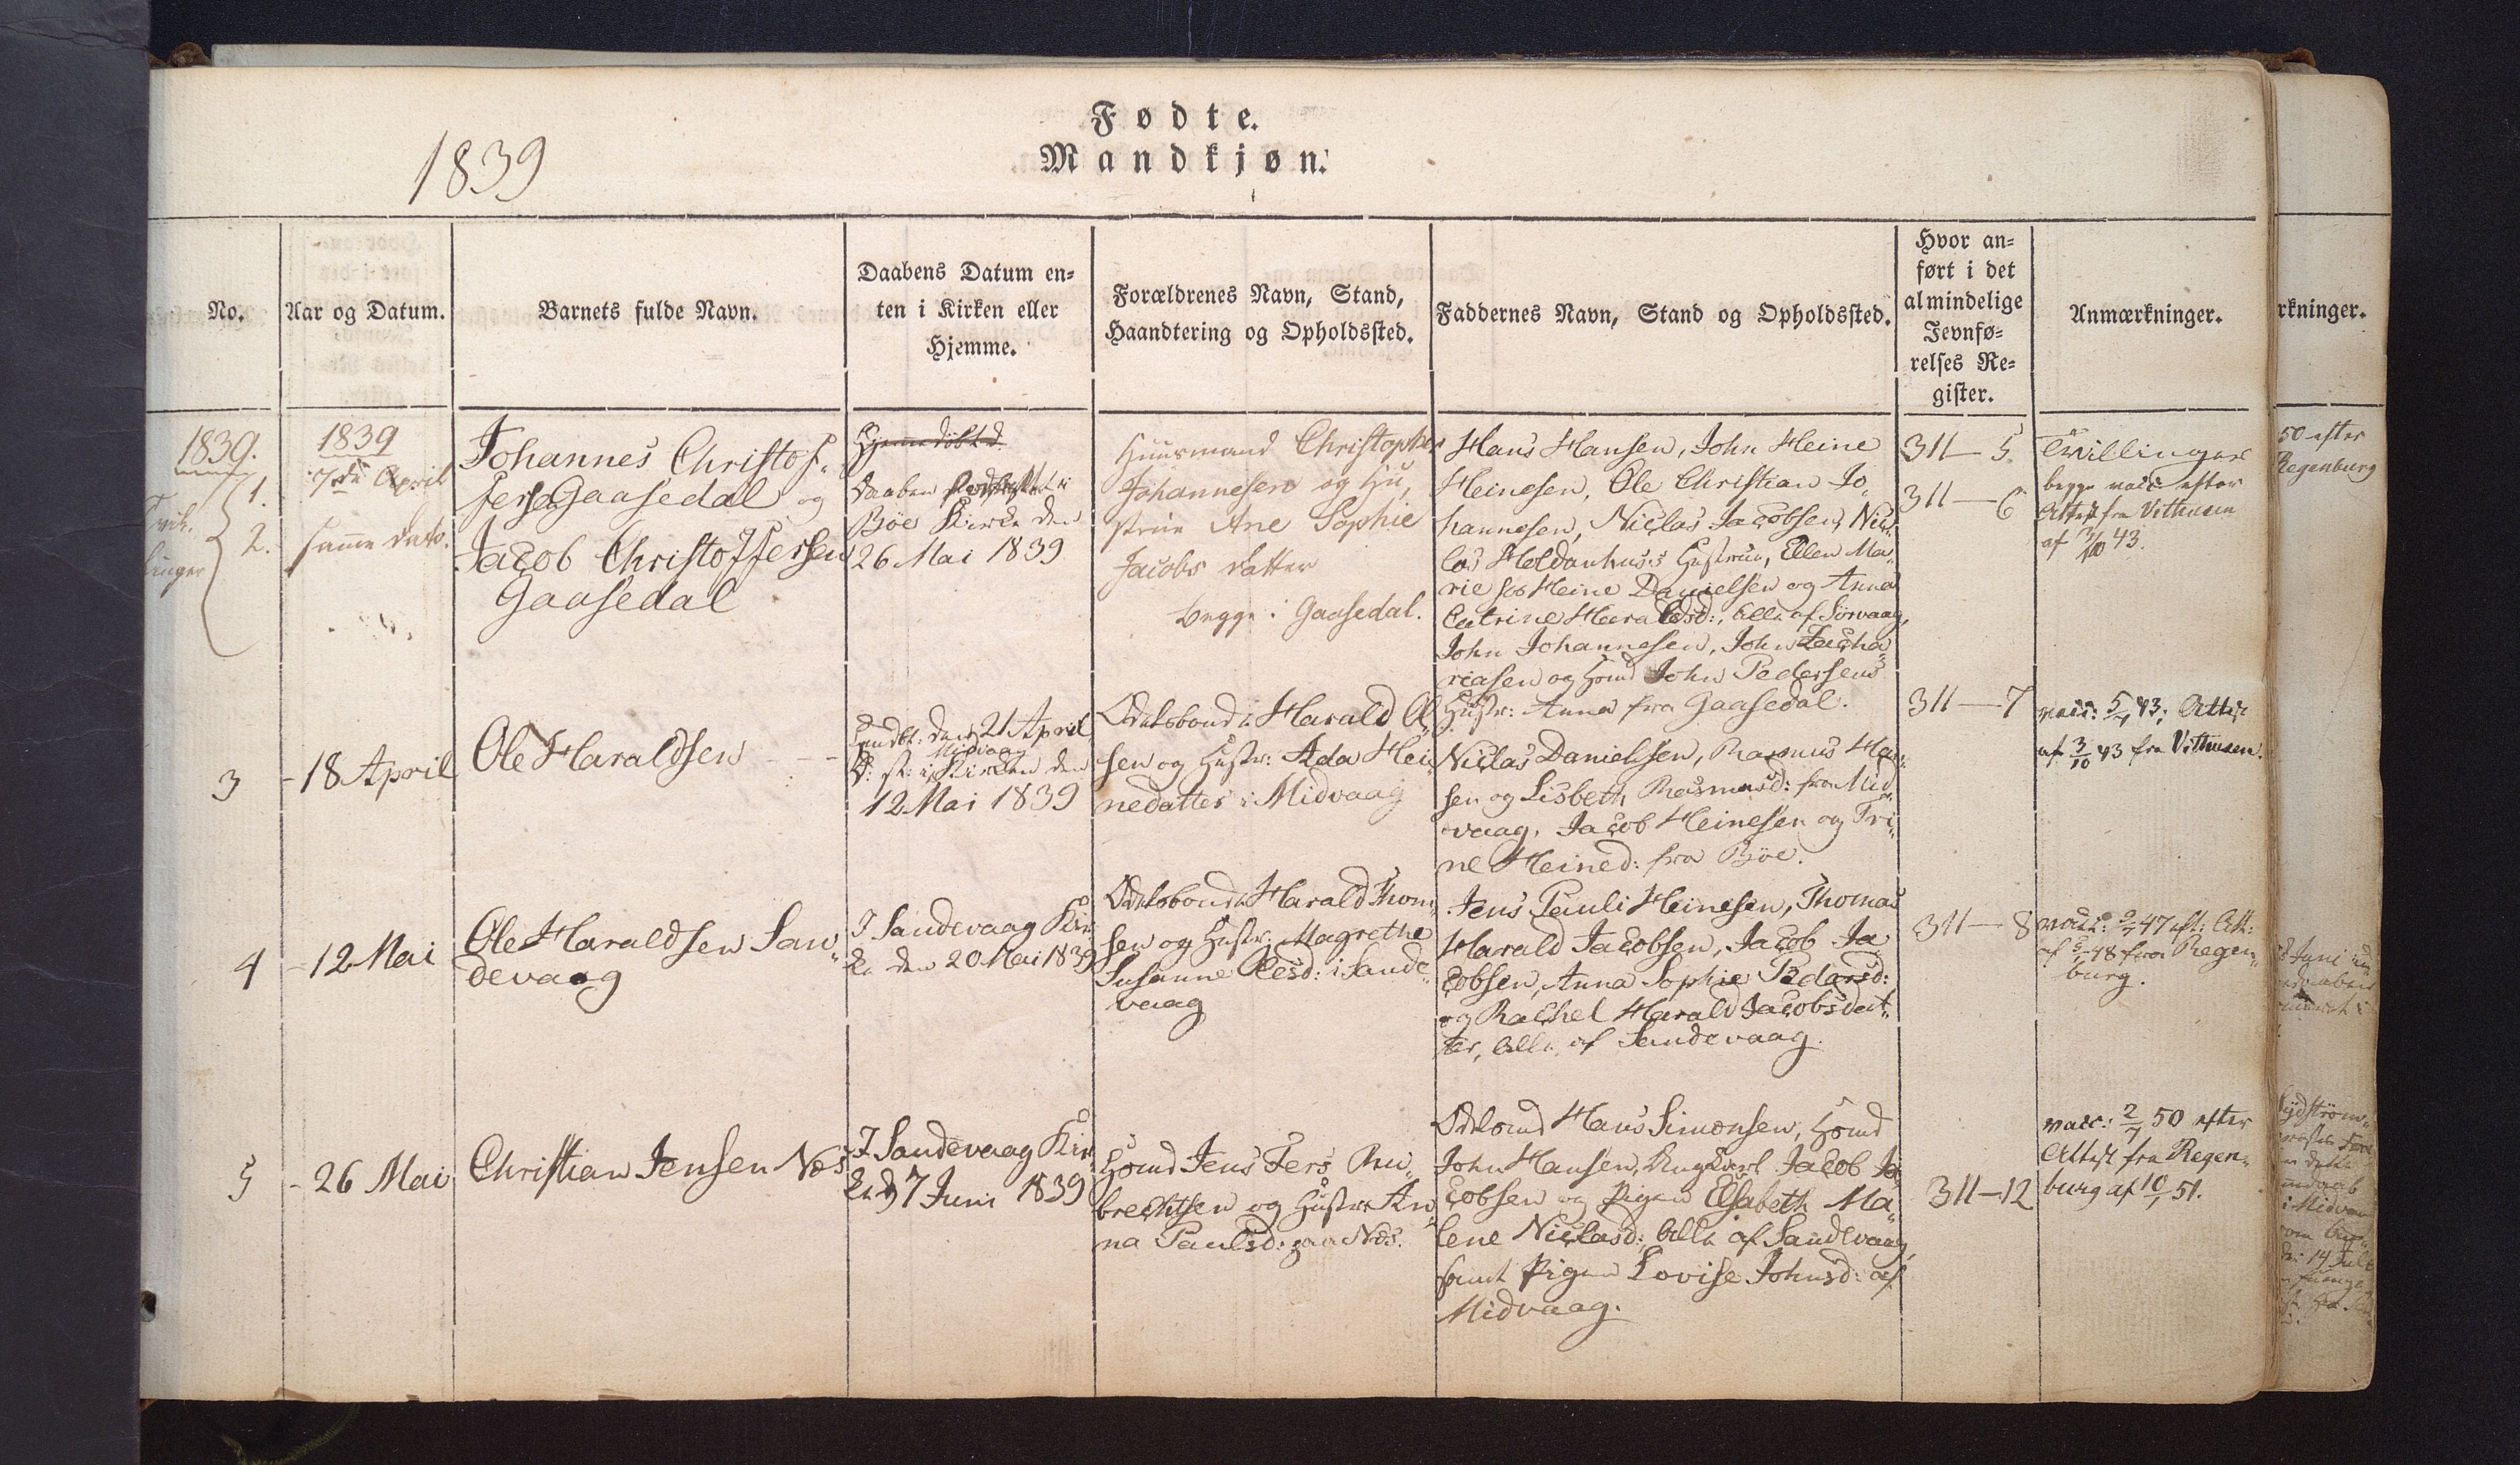 Fødte.
Mandkjøn.
1839
No.
Aar og Datum.
Barnets fulde Navn.
Daabens Datum en-
ten i Kirken eller
Hjemme.
Forældrenes Navn, Stand,
Haandtering og Opholdssted.
Faddernes Navn, Stand og Opholdssted.
Hvor an-
ført i det
almindelige
Jevnfø-
relses Re-
gister.
Anmærkninger.
rkninger.
1839.
1.
2.
linger
1839
7de April
samme dato.
Johannes Christof-
fersen Gaasedal og
Jacob Christoffersen
Gaasedal
Hjemmedöbt d.
Daaben i
Böe Kirke den
26 Mai 1839
Huusmand Christopher
Johannesen og Hu-
strue Ane Sophie
Jacobs datter
begge i Gaasedal.
Hans Hansen, John Heine
Heinesen, Ole Christian Jo-
hannesen, Niclas Jacobsen, Nic-
las Hustrue, Ellen Ma-
rie Heine Danielsen og Anna
Catrine Haraldsd:, alle af Sörvaag,
John Johannesen, John Zacha-
riasen og John Pedersens
Hustr: Anna fra Gaasedal.
311—5.
311—6
Tvillinger
begge vacc: efter
Attest fra Vithusen
af 3/10 43.
3
-18 April
Ole Haraldsen
den 21 April
Midvaag
Kirken den
12 Mai 1839
Odelsbonde Harald Ol-
sen og Hustr: Ada Hei-
nedatter i Midvaag
Niclas Danielsen, Rasmus Han-
sen og Lisbeth Rasmusd: fra Mid-
vaag, Jacob Heinesen og Tri-
ne Heined: fra Böe.
311—7
vacc: 43; Attest
af 3/10 43 fra Vithusen.
4
-12 Mai
Ole Haraldsen San-
devaag
I Sandevaag Kir-
ke den 20 Mai 1839
Odelsbonde Harald Thom-
sen og Hustr: Magrethe
Susanne Olesd: i Sande-
vaag
Jens Pauli Heinesen, Thomas
Harald Jacobsen, Jacob Ja-
cobsen, Anna Sophie Pedersd:
og Rachel Harald Jacobsdat-
ter, alle af Sandevaag.
311—8
vacc: 47 eft: Att:
af 48 fra Regen-
burg.
5
-26 Mai
Christian Jensen Næs
I Sandevaag Kir-
ke d 7 Juni 1839
Jens
brechtsen og Hustr: An-
na Paulsd: paa Næs.
Hans Simonsen,
John Hansen, Ungkarl Jacob Ja-
cobsen og Pigen Elsabeth Ma-
lene Niclasd:, alle af Sandevaag,
samt Pigen Lovise Johnsd: af
Midvaag.
311—12
vacc: 2/7 50 efter
Attest fra Regen-
burg af 10/1 51.
50 efter
Regenburg
Juni
14 Juli